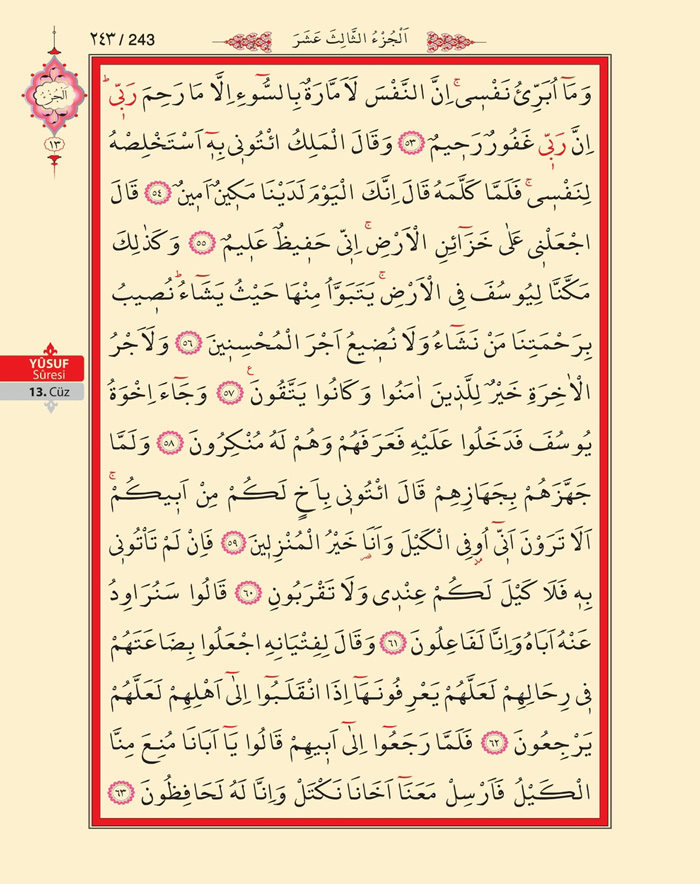 ٢٤٣ / 243
اَلْجُزْءُ الثَّالِثَ عَشَرَ
اَلْجُزْءُ
١٣
وَمَٓا اُبَرِّئُ نَفْسٖيۚ اِنَّ النَّفْسَ لَاَمَّارَةٌ بِالسُّٓوءِ اِلَّا مَا رَحِمَ رَبّٖيۜ
اِنَّ رَبّٖي غَفُورٌ رَحٖيمٌ ﴿٥٣﴾ وَقَالَ الْمَلِكُ ائْتُونٖي بِهٖٓ اَسْتَخْلِصْهُ
لِنَفْسٖيۚ فَلَمَّا كَلَّمَهُ قَالَ اِنَّكَ الْيَوْمَ لَدَيْنَا مَكٖينٌ اَمٖينٌ ﴿٥٤﴾ قَالَ
اجْعَلْنٖي عَلٰى خَزَٓائِنِ الْاَرْضِۚ اِنّٖي حَفٖيظٌ عَلٖيمٌ ﴿٥٥﴾ وَكَذٰلِكَ
مَكَّنَّا لِيُوسُفَ فِي الْاَرْضِۚ يَتَبَوَّاُ مِنْهَا حَيْثُ يَشَٓاءُۜ نُصٖيبُ
بِرَحْمَتِنَا مَنْ نَشَٓاءُ وَلَا نُضٖيعُ اَجْرَ الْمُحْسِنٖينَ ﴿٥٦﴾ وَلَاَجْرُ
الْاٰخِرَةِ خَيْرٌ لِلَّذٖينَ اٰمَنُوا وَكَانُوا يَتَّقُونَࣖ ﴿٥٧﴾ وَجَٓاءَ اِخْوَةُ
يُوسُفَ فَدَخَلُوا عَلَيْهِ فَعَرَفَهُمْ وَهُمْ لَهُ مُنْكِرُونَ ﴿٥٨﴾ وَلَمَّا
جَهَّزَهُمْ بِجَهَازِهِمْ قَالَ ائْتُونٖي بِاَخٍ لَكُمْ مِنْ اَبٖيكُمْۚ
اَلَا تَرَوْنَ اَنّٖٓي اُو۫فِي الْكَيْلَ وَاَنَا۬ خَيْرُ الْمُنْزِلٖينَ ﴿٥٩﴾ فَاِنْ لَمْ تَأْتُونٖي
بِهٖ فَلَا كَيْلَ لَكُمْ عِنْدٖي وَلَا تَقْرَبُونِ ﴿٦٠﴾ قَالُوا سَنُرَاوِدُ
عَنْهُ اَبَاهُ وَاِنَّا لَفَاعِلُونَ ﴿٦١﴾ وَقَالَ لِفِتْيَانِهِ اجْعَلُوا بِضَاعَتَهُمْ
فٖي رِحَالِهِمْ لَعَلَّهُمْ يَعْرِفُونَهَٓا اِذَا انْقَلَبُٓوا اِلٰٓى اَهْلِهِمْ لَعَلَّهُمْ
يَرْجِعُونَ ﴿٦٢﴾ فَلَمَّا رَجَعُٓوا اِلٰٓى اَبٖيهِمْ قَالُوا يَٓا اَبَانَا مُنِعَ مِنَّا
الْكَيْلُ فَاَرْسِلْ مَعَنَٓا اَخَانَا نَكْتَلْ وَاِنَّا لَهُ لَحَافِظُونَ ﴿٦٣﴾
YÛSUF
Sûresi
13. Cüz